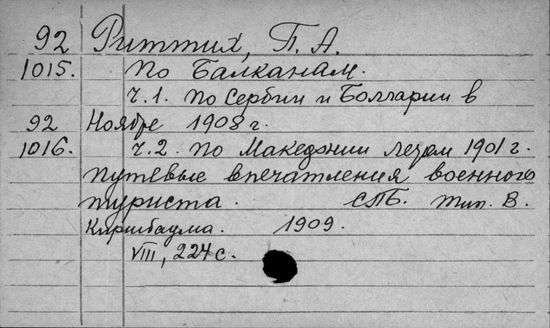 92 Риттих, П. А.
1015. По Балканам.
Ч.1. По Сербии и Болгарии в
92 Ноябре 1908 г.
1016. Ч.2. По Македонии летом 1901 г.
Путевые впечатления военного
туриста. СПБ. тип. В.
Киршбаума. 1909.
VIII, 224 с.